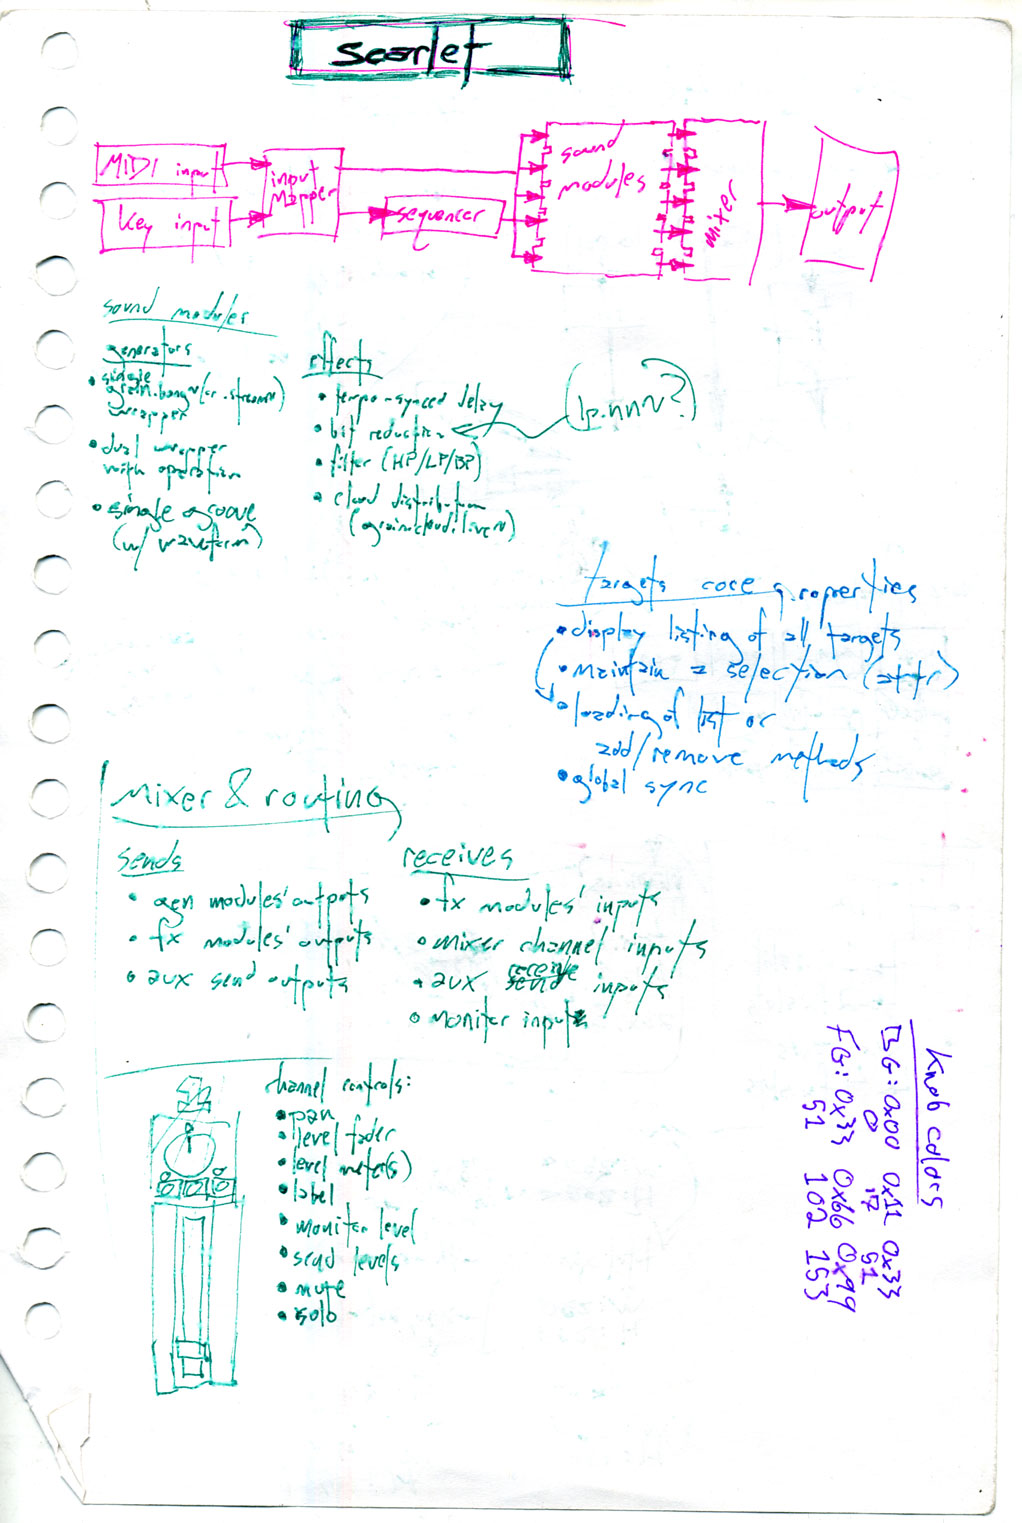 Scarlet
MIDI input
Key input
input
mapper
sequencer
sound
modules
mixer
output
sound modules
generators
• single
grain.bang~ (or .stream~)
wrapper
• dual wrapper
with operation
• single groove
(w/ waveform)
effects
• tempo-synced delay
• bit reduction
• filter (HP/LP/BP)
• cloud distribution
(grain.cloud.live~)
(lp.nnn~?)
targets core properties
• display listing of all targets
• maintain a selection (attr)
• loading of list or
add/remove methods
• global sync
mixer & routing
sends
• gen modules' outputs
• fx modules' outputs
• aux send outputs
receives
• fx modules' inputs
• mixer channel inputs
• aux receive inputs
• monitor inputs
channel controls:
• pan
• level fader
• level meter(s)
• label
• monitor level
• send levels
• mute
• solo
Knob colors
BG: 0x00 0x11 0x33
0 17 51
FG: 0x33 0x66 0x99
51 102 153